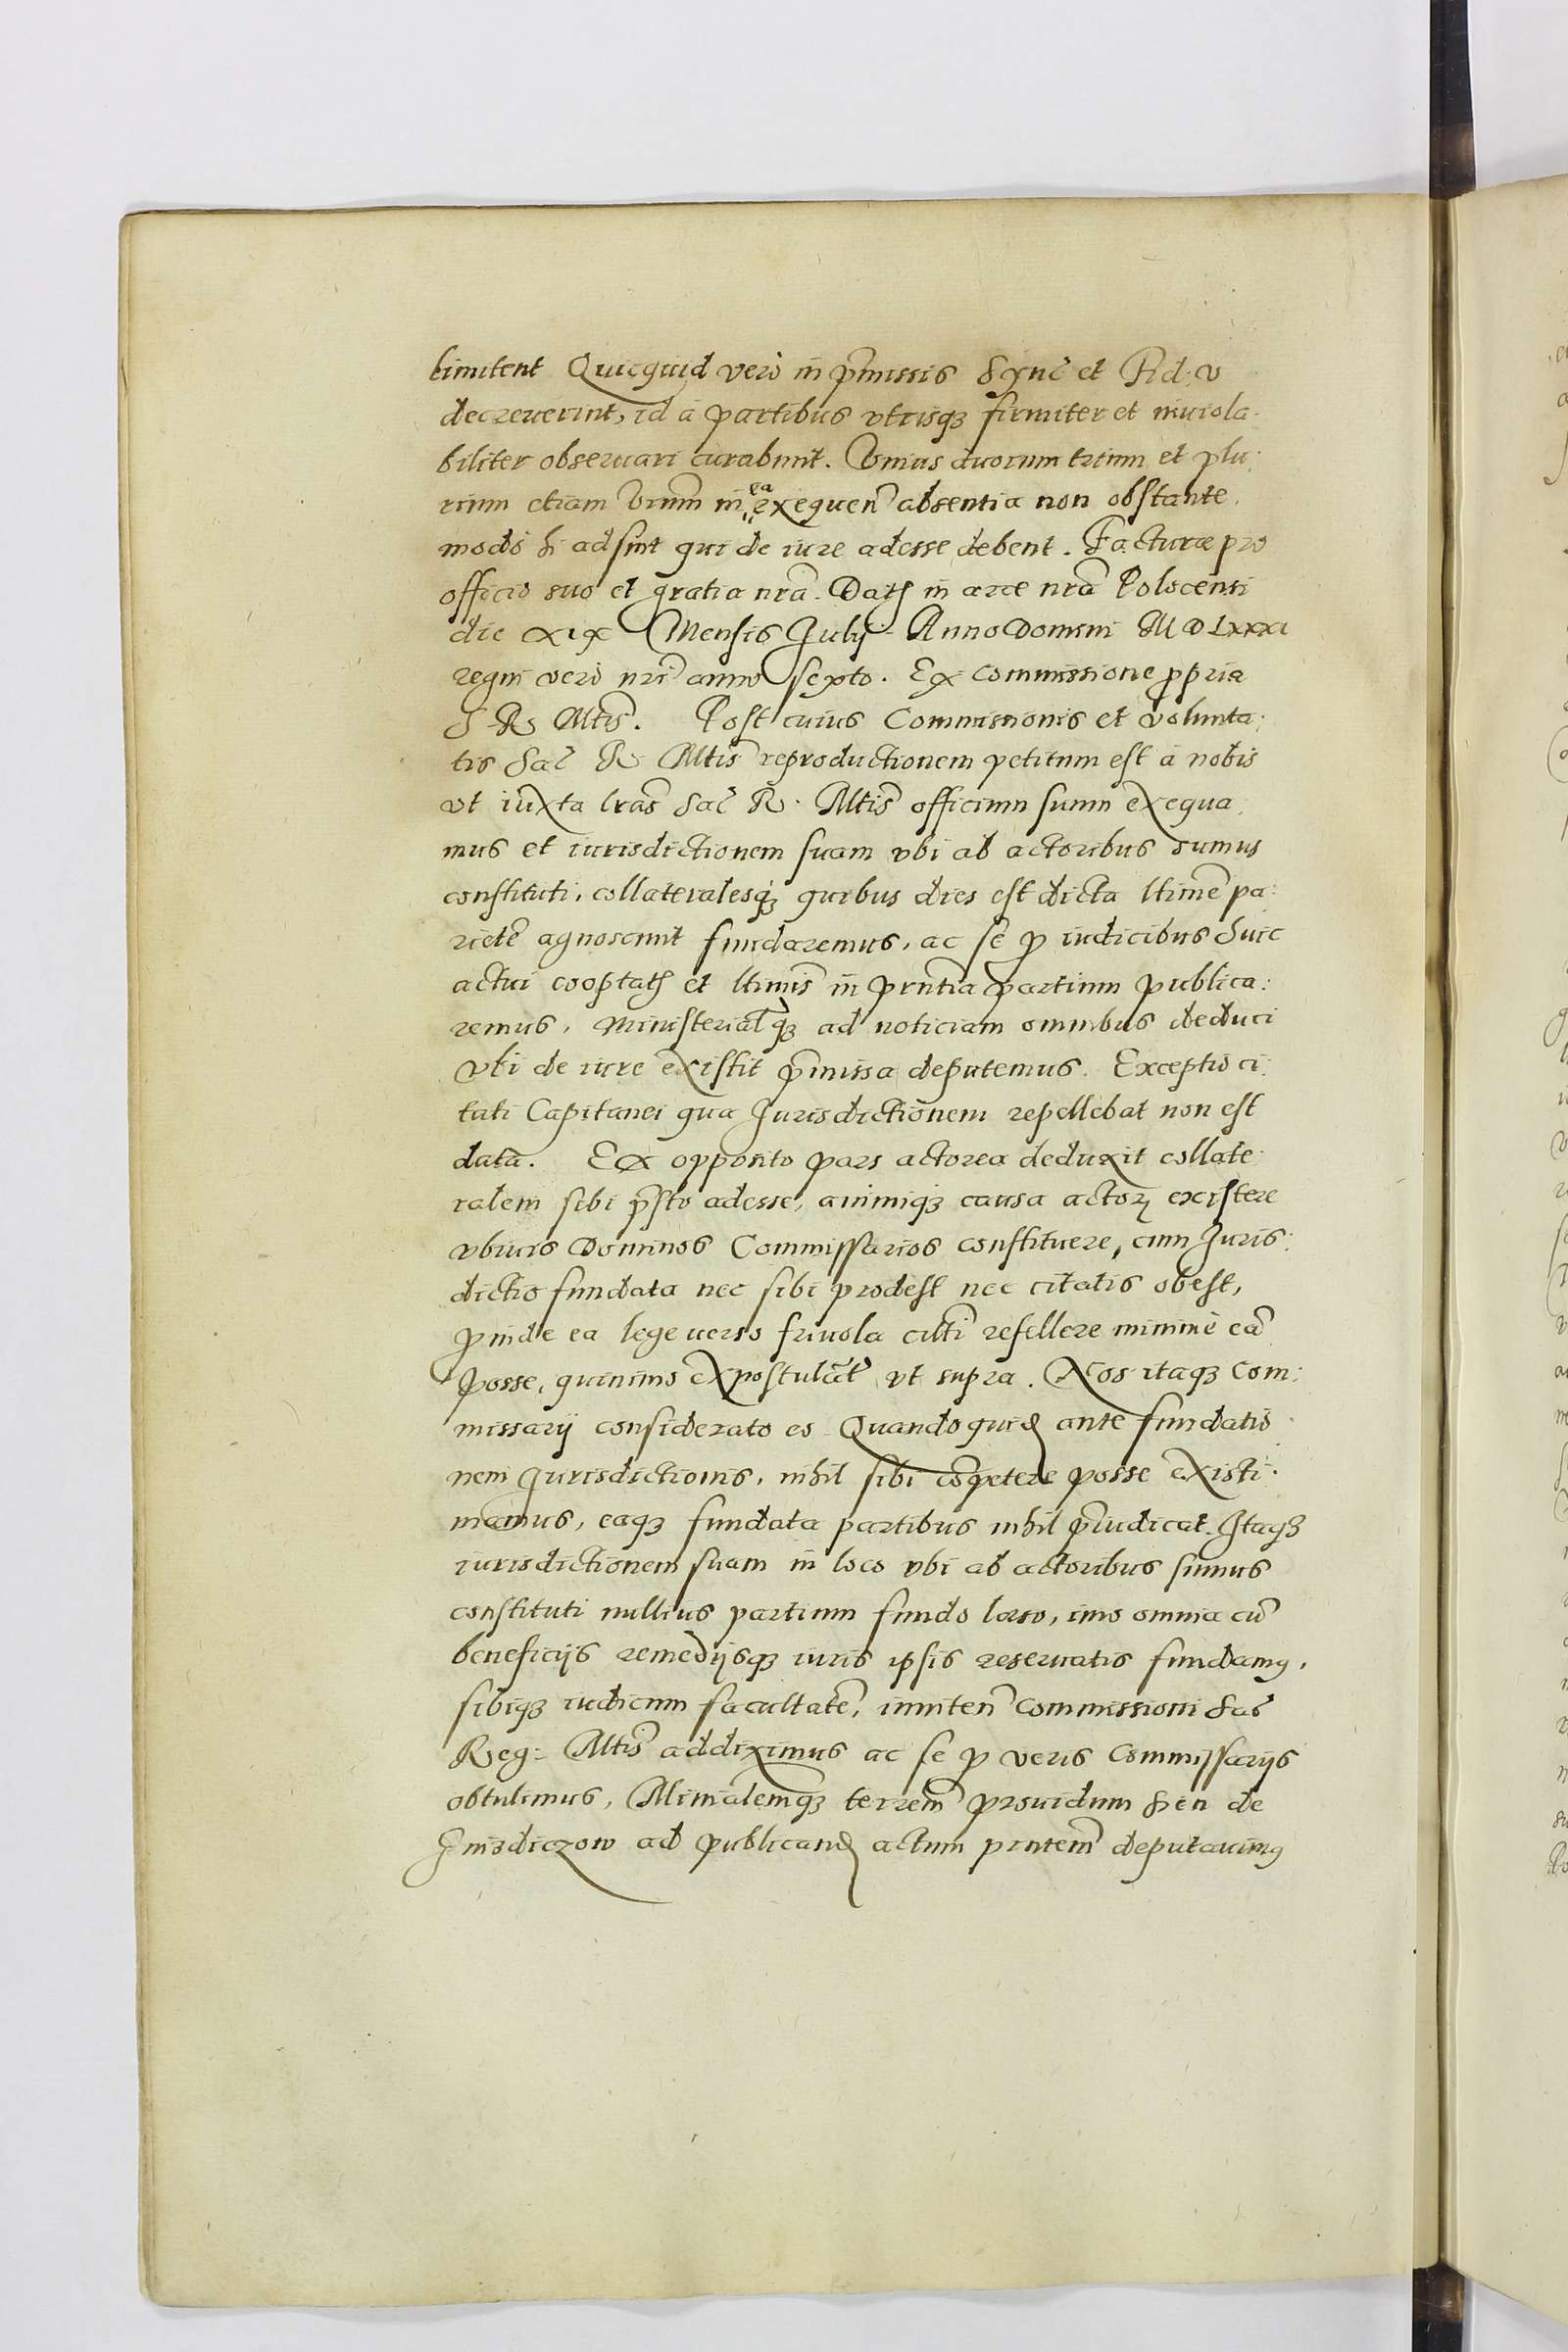 limitent Quicquid vero in p̃missis Syñc et Fid: v
decreverint, id à partibus vtrisqʒ firmiter et inuiola.
biliter obseruari curabunt. Vnius duorum trium et plu:
rium etiam Vrūm in ea exequeñ absentia non obstante.
modo hi adsint qui de iure adesse debent. Facturæ pro
officio suo et gratia nrã. Datʒ in arce nrã Polocensi
die xix Mensis Julij Anno Domini M D Lxxxi
regni vero nrĩ anno sexto. Ex commissione ꝓpria
S R Mtis̃. Post cuius Commissionis et volunta:
tis Sac̃ R Mtis̃ reproductionem petitum est à nobis
vt iuxta lrãs Sac̃ R. Mtis̃ officium suum exequa.
mus et iurisdictionem suam vbi ab actoribus sumus
constituti, collateralesqʒ quibus dies est dicta ltimẽ pa:
rietẽ agnoscunt fundaremus, ac se ꝓ iudicibus huic
actui cooptatʒ et ltimis̃ in prñtia partium publica:
remus, Ministerialẽqʒ ad noticiam omnibus deduci
vti de iure existit p̃missa deputemus. Exceptio ci:
tati Capitanei qua Jurisdictionem repellebat non est
data. Ex opposito pars actorea deduxit collate
ralem sibi p̃sto adesse, animiqʒ causa actorʒ existere
vbiuis Dominos Commissarios constituere, cum Juris:
dictio fundata nec sibi prodest nec citatis obest,
ꝓinde ea lege verso friuola citti refellere minimè eã
posse, quinimo expostulat vt supra. Nos itaqʒ Com:
missarij considerato eo Quandoquidʒ ante fundatio
nem Jurisdictionis, nihil sibi cõpetere posse existi.
mamus, eaqʒ fundata partibus nihil p̃iudicat. Itaqʒ
iurisdictionem suam in loco vbi ab actoribus sumus
constituti nullius partium fundo laeso, imo omnia cũ
beneficijs remedijsqʒ iuris ipsis reseruatis fundamꝰ,
sibiqʒ iudicum facultatẽ, inniteñ commissioni Sac̃
Reg: Mtis̃ addiximus ac se ꝓ veris Commissarijs
obtulimus, Minialemqʒ terrem̃ prouidum de
Gnisdiczow ad publicandʒ actum prntem̃ deputauimꝰ